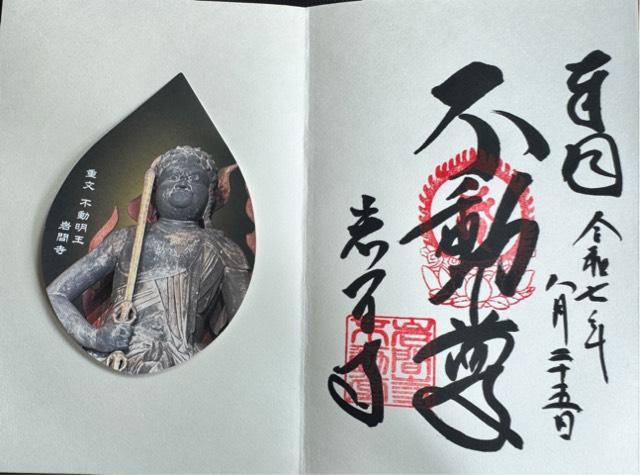 重文 不動明王
岩間寺
奉拝
令和七年
八月二十五日
不動尊
岩间寺